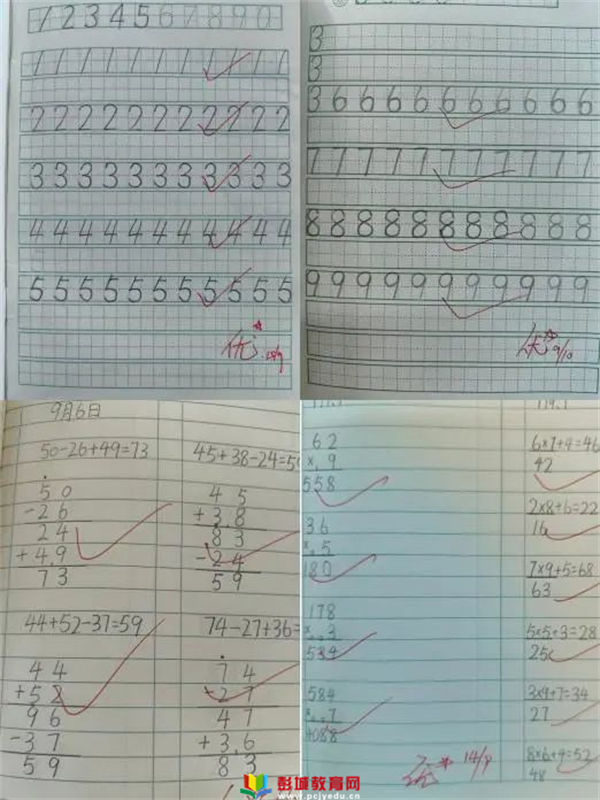 1234567890
111111111111
222222222222
333333333333
444444444444
555555555555
优
3
3
366666666666
777777777777
888888888888
999999999999
优 9/10
9月6日
50-26+49=73
50
-26
24
+49
73
45+38-24=59
45
+38
83
-24
59
44+52-37=59
44
+52
96
-37
59
74-27+36=
74
-27
47
+36
83
62
×9
558
36
×5
180
178
×3
534
584
×7
4088
优 14/9
6×7+4=46
42
2×8+6=22
16
7×9+5=68
63
5×5+3=28
25
3×9+7=34
27
8×6+4=52
48
彭城教育网
www.pcjyedu.cn